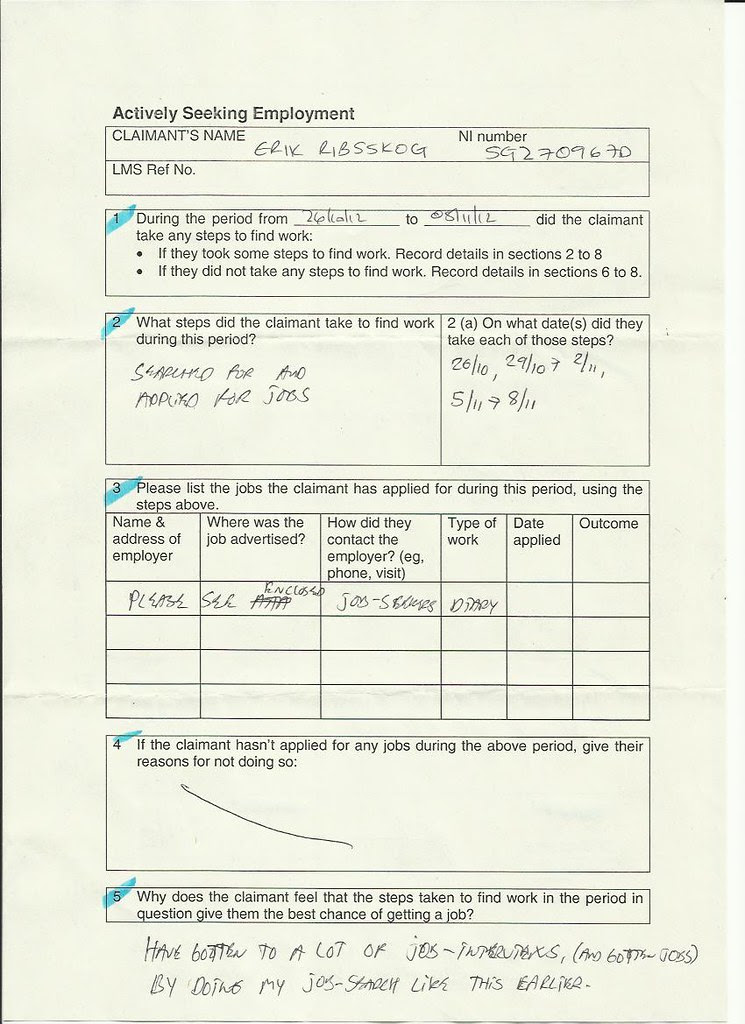 Actively Seeking Employment
CLAIMANT'S NAME ERIK RIBSSKOG NI number SG270967D
LMS Ref No.
1 During the period from 26/10/12 to 08/11/12 did the claimant
take any steps to find work:
• If they took some steps to find work. Record details in sections 2 to 8
• If they did not take any steps to find work. Record details in sections 6 to 8.
2 What steps did the claimant take to find work
during this period?
SEARCHED FOR AND
APPLIED FOR JOBS
2 (a) On what date(s) did they
take each of those steps?
26/10, 29/10 → 2/11,
5/11 → 8/11
3 Please list the jobs the claimant has applied for during this period, using the
steps above.
Name &
address of
employer
Where was the
job advertised?
How did they
contact the
employer? (eg,
phone, visit)
Type of
work
Date
applied
Outcome
PLEASE SEE ENCLOSED JOB-SEEKERS DIARY
4 If the claimant hasn't applied for any jobs during the above period, give their
reasons for not doing so:
5 Why does the claimant feel that the steps taken to find work in the period in
question give them the best chance of getting a job?
HAVE GOTTEN TO A LOT OF JOB-INTERVIEWS, (AND GOTTEN JOBS)
BY DOING MY JOB-SEARCH LIKE THIS EARLIER.